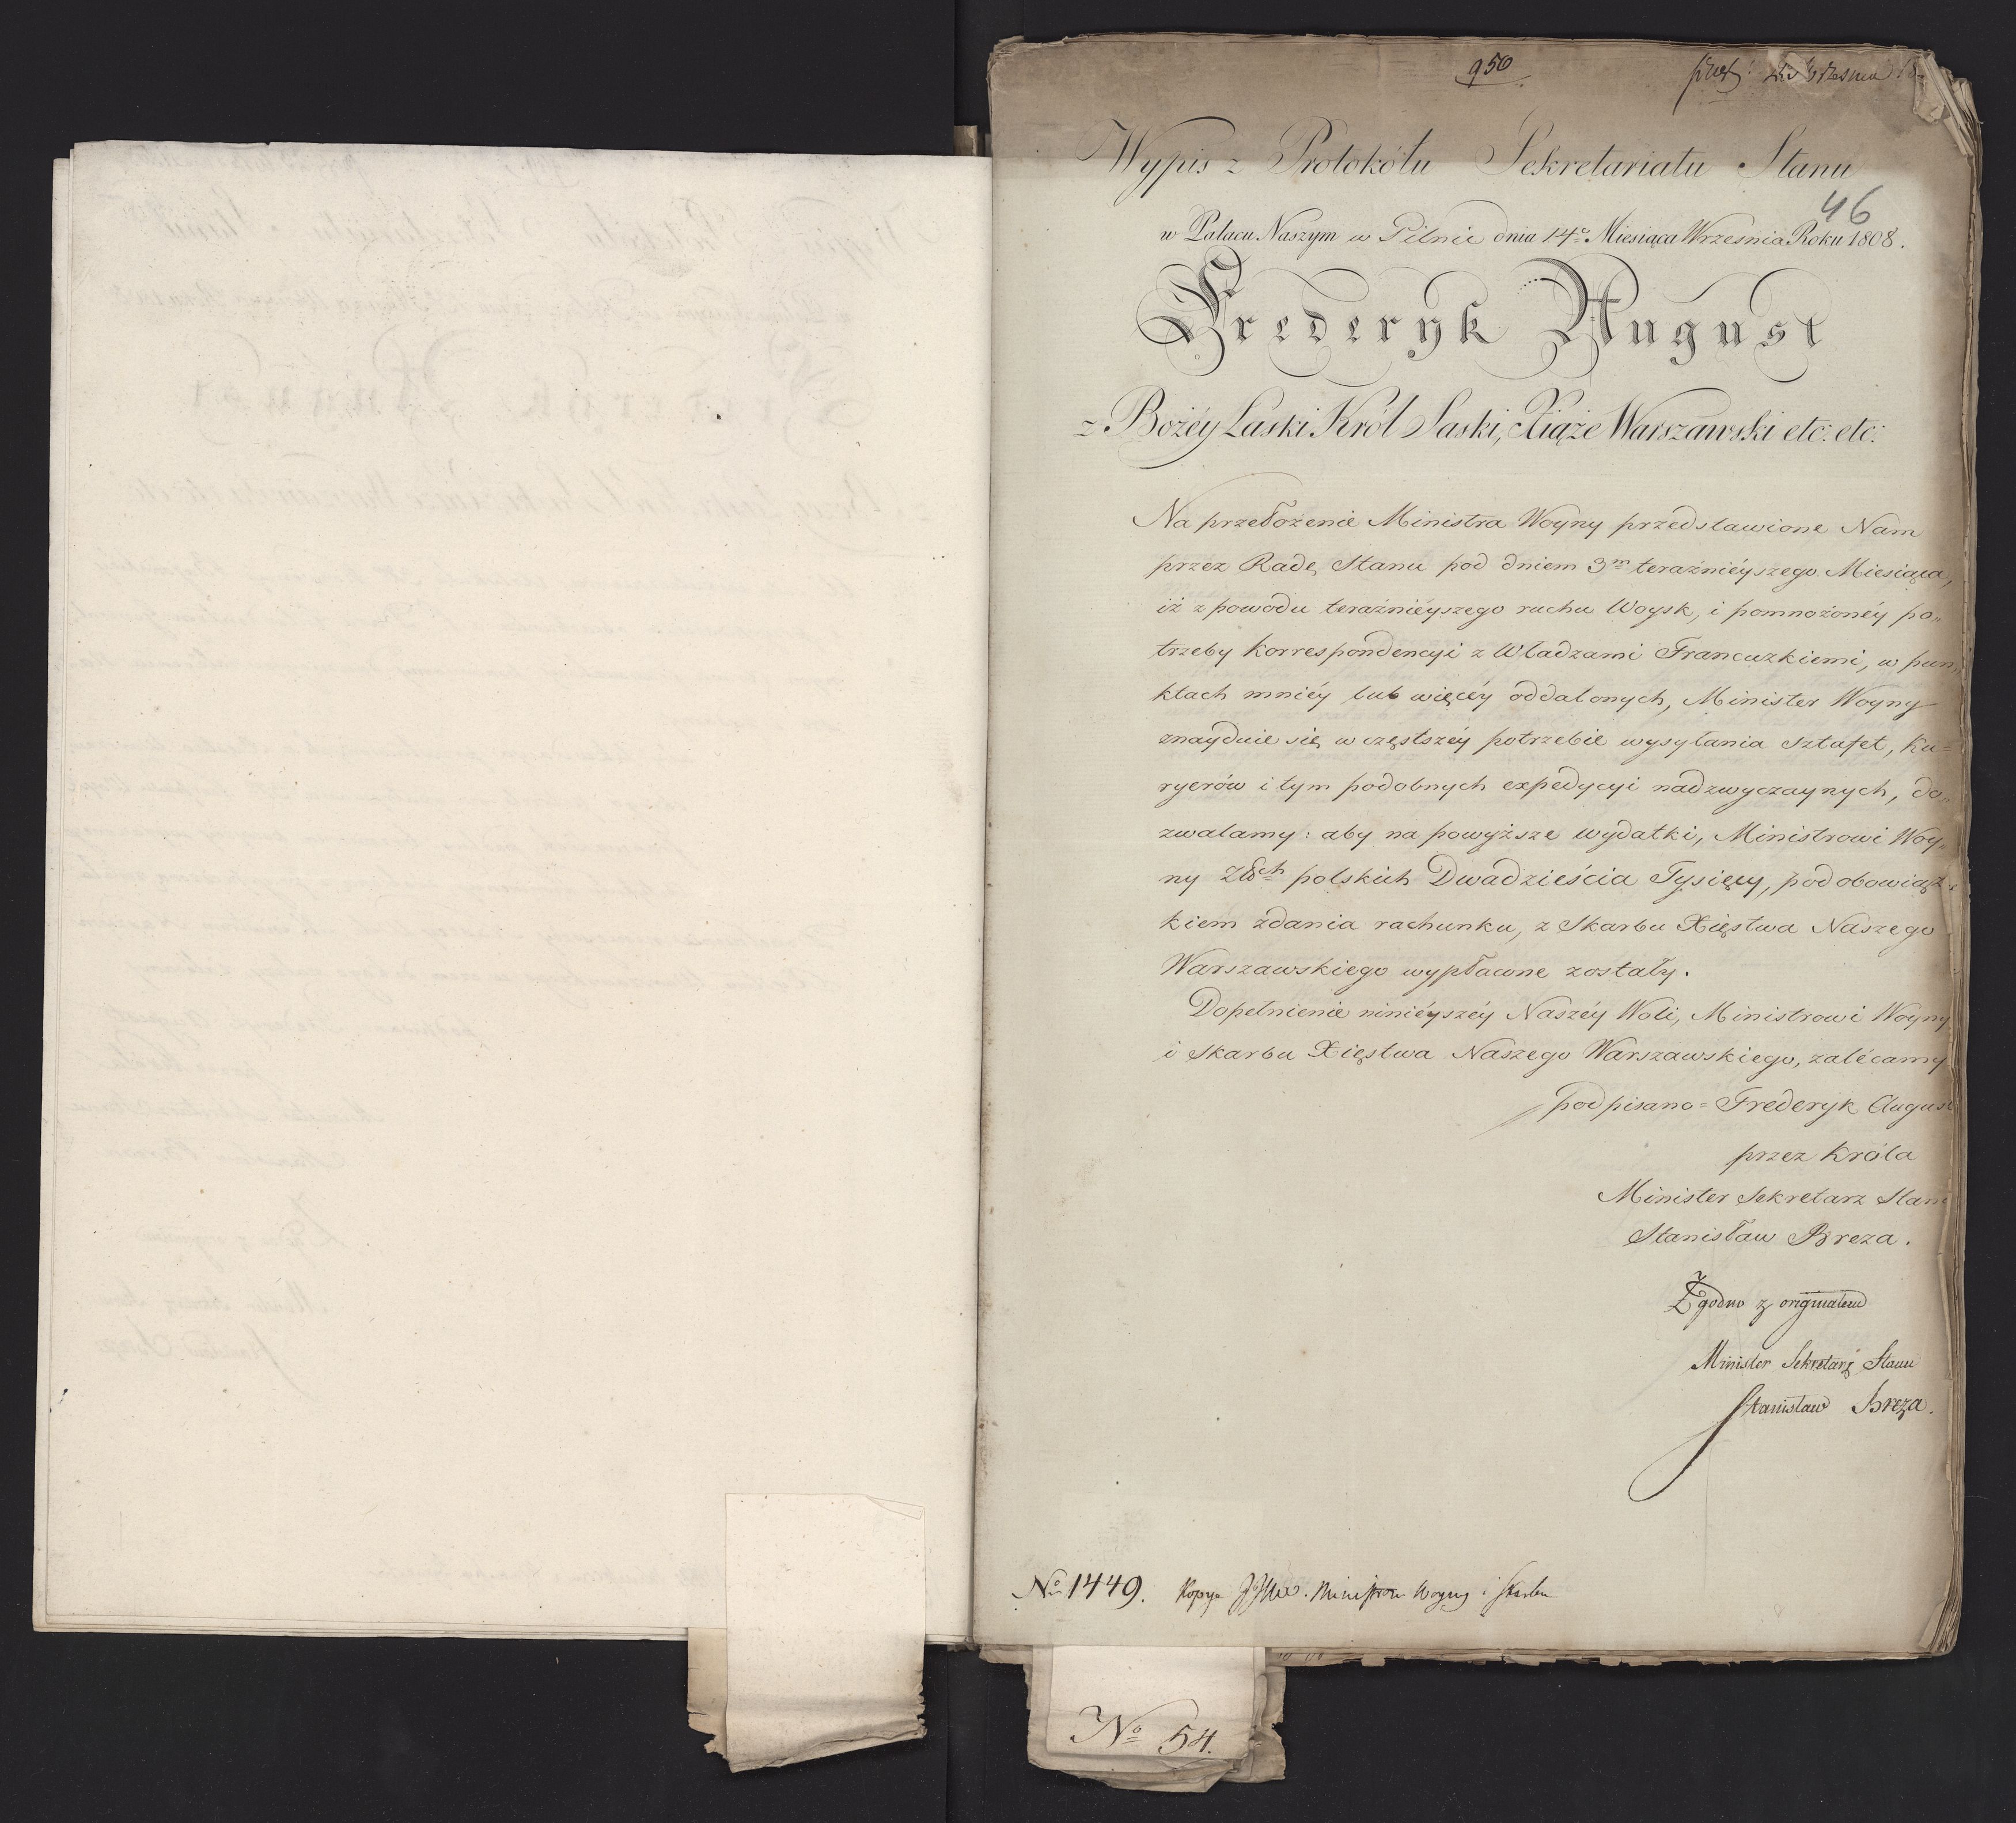 950
Września
Wypis z Protokółu Sekretariatu Stanu
46
w Pałacu Naszym w Pilnie dnia 14º Miesiąca Września Roku 1808.
Frederyk August
z Bożéy Łaski Król Saski, Xiąże Warszawski etc: etc:
Na przełożenie Ministra Woyny przedstawione Nam
przez Radę Stanu pod dniem 3m teraźnieyszego Miesiąca,
iż z powodu teraźniéyszego ruchu Woysk, i pomnożonéy po„
trzeby korrespondencyi z Władzami Francuzkiemi, w pun„
ktach mniéy lub więcéy oddalonych, Minister Woyny
znayduie się w częstszéy potrzebie wysyłania sztafet, Ku=
ryerów i tym podobnych expedycyi nadzwyczaynych, do„
zwalamy: aby na powyższe wydatki, Ministrowi Woy„
ny Złch polskich Dwadzieścia Tysięcy, pod obowiąz„
kiem zdania rachunku, z Skarbu Xięstwa Naszego
Warszawskiego wypłacone zostały.
Dopełnienie niniéyszéy Naszéy Woli, Ministrowi Woyny
i Skarbu Xięstwa Naszego Warszawskiego, zalécamy
podpisano = Frederyk August
przez Króla
Minister Sekretarz Stanu
Stanisław Breza.
Zgodno z originałem
Minister Sekretarz Stanu
Stanisław Breza.
No 1449. Kopya JJWW. Ministrom Woyny i Skarbu
No 54.